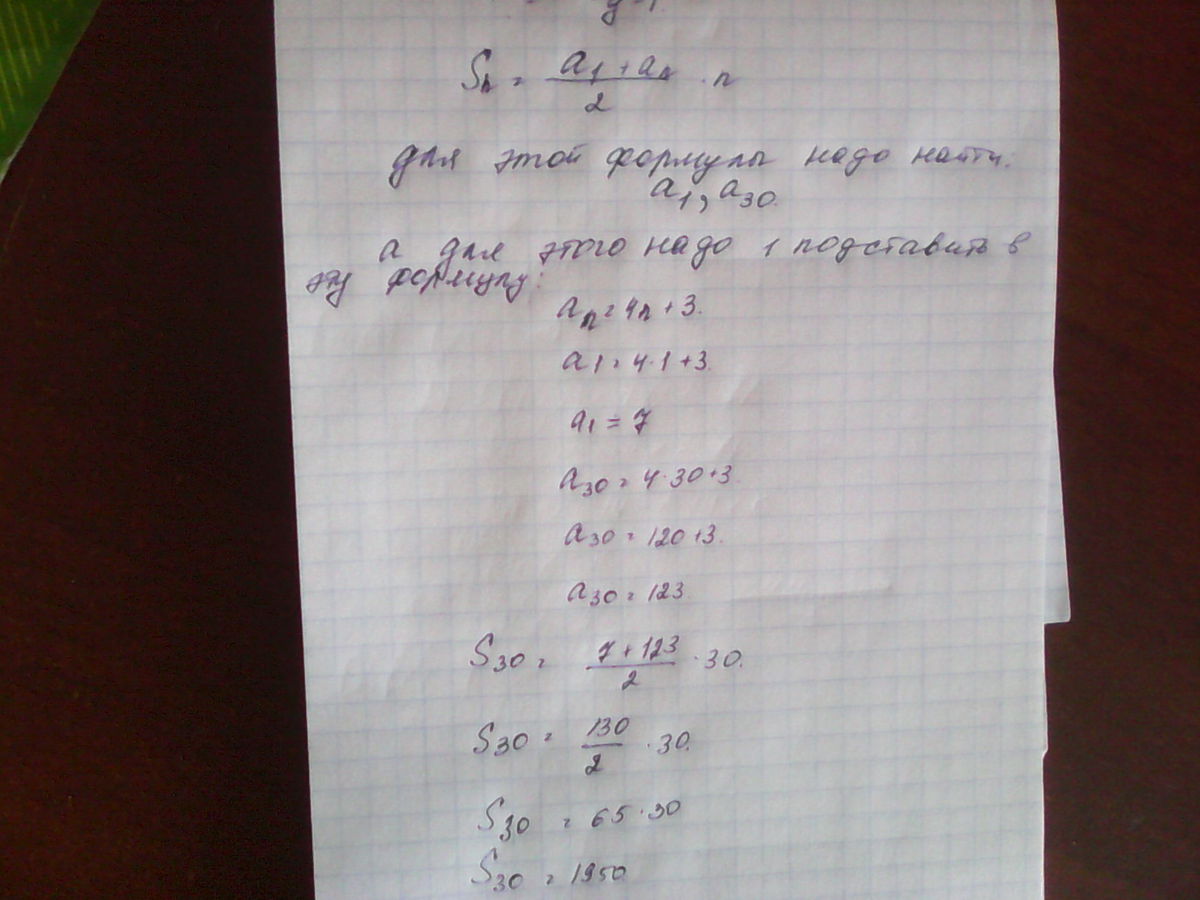 Sn = (a1 + an)/2 · n
для этой формулы надо найти:
a1, a30.
а для этого надо 1 подставить в
эту формулу:
an = 4n + 3.
a1 = 4·1 + 3.
a1 = 7
a30 = 4·30 + 3.
a30 = 120 + 3.
a30 = 123.
S30 = (7 + 123)/2 · 30.
S30 = 130/2 · 30.
S30 = 65·30
S30 = 1950